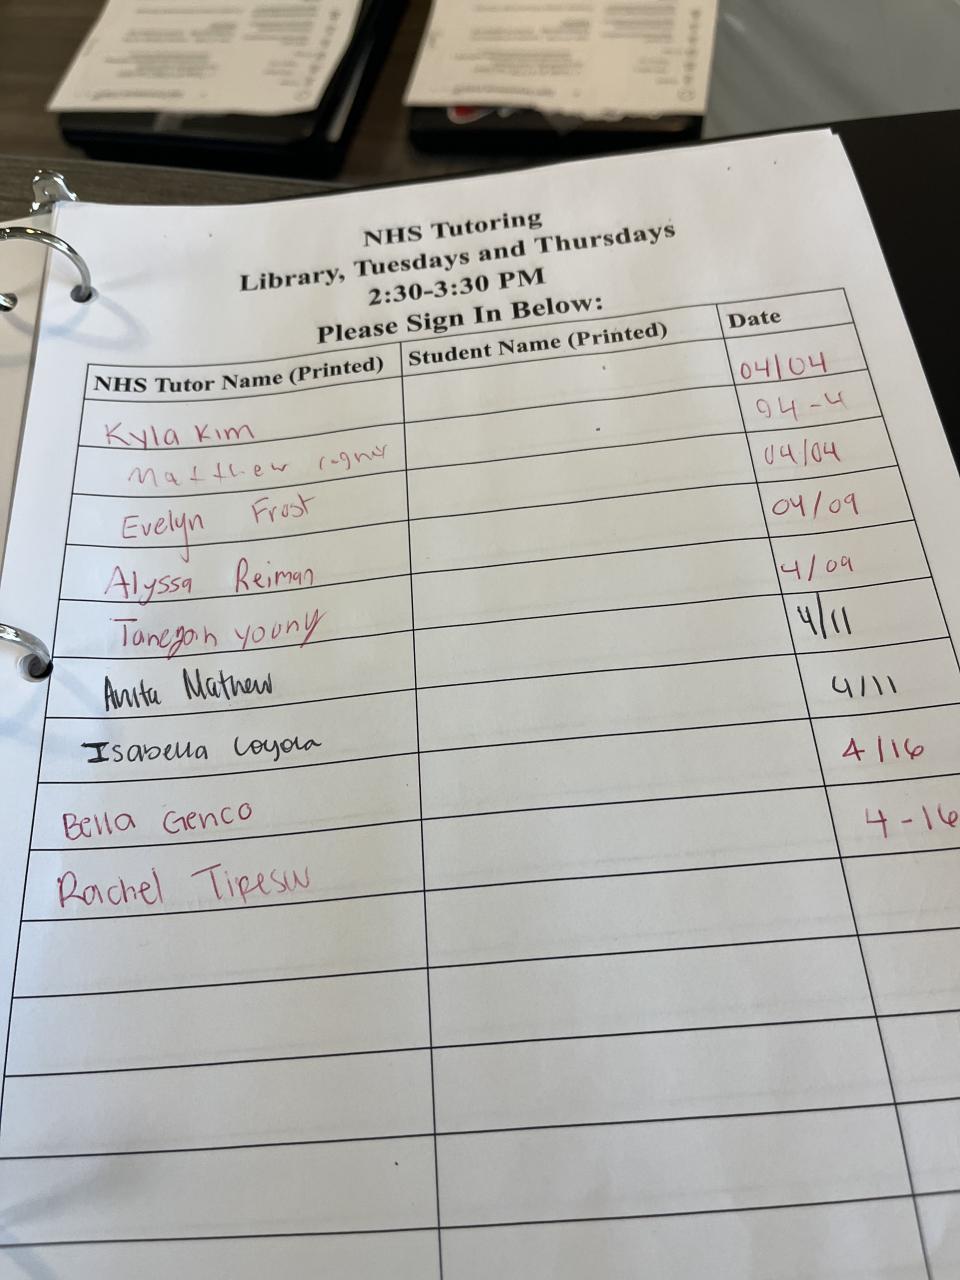 NHS Tutoring
Library, Tuesdays and Thursdays
2:30-3:30 PM
Please Sign In Below:
NHS Tutor Name (Printed) Student Name (Printed) Date
Kyla Kim 04/04
Matthew 04-4
Evelyn Frost 04/04
Alyssa Reiman 04/09
Young 4/09
Anita Mathew 4/11
Isabella Loyola 4/11
Bella Genco 4/16
Rachel 4-16